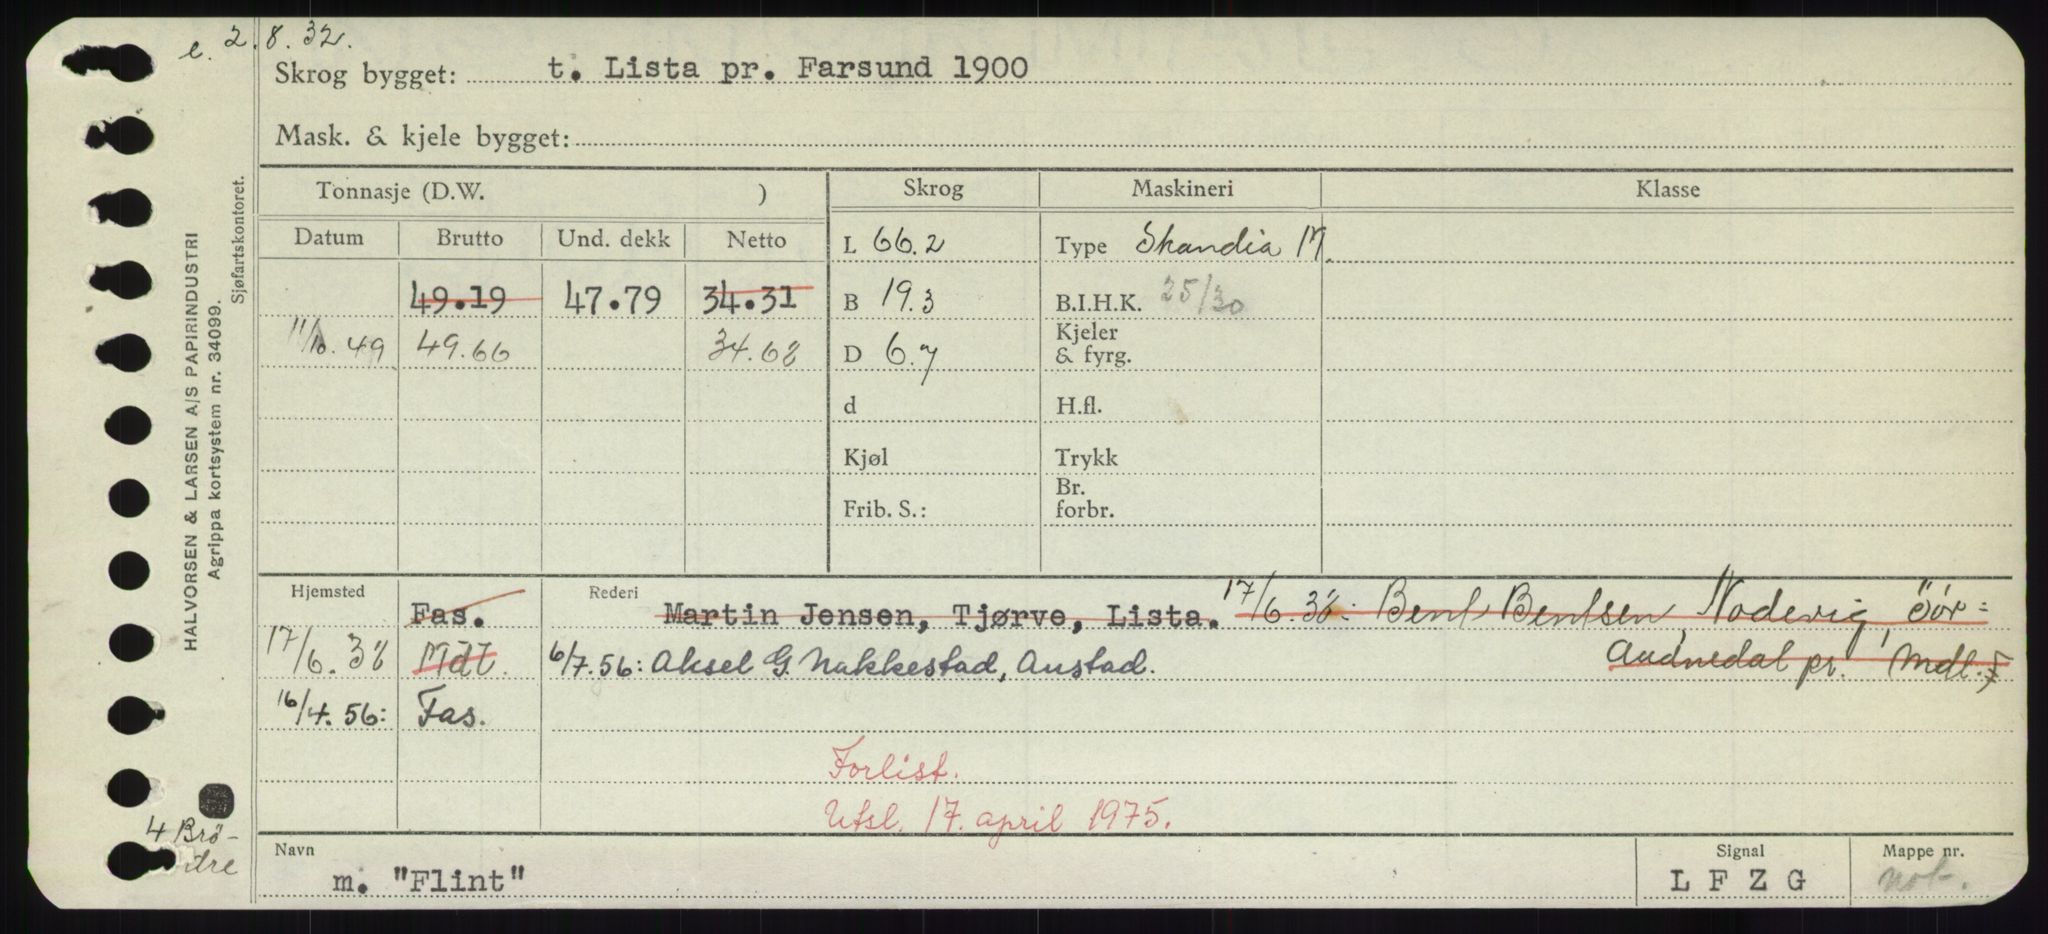 e. 2.8.32.
Skrog bygget: t. Lista pr. Farsund 1900
Mask. & kjele bygget:
HALVORSEN & LARSEN A/S PAPIRINDUSTRI
Agrippa kortsystem nr. 34099.
Sjøfartskontoret.
Tonnasje (D.W. ) Skrog Maskineri Klasse
Datum Brutto Und. dekk Netto L 66.2 Type Skandia M.
49.19 47.79 34.31 B 19.3 B.I.H.K. 25/30
11/10.49 49.66 34.62 D 6.7 Kjeler & fyrg.
d H.fl.
Kjøl Trykk
Frib. S.: Br. forbr.
Hjemsted Fas. Rederi Martin Jensen, Tjørve, Lista. 17/6.38: Bent Bentsen, Nodevig, Sör=
17/6.38 Mdl. 6/7.56: Aksel G. Nakkestad, Austad. Audnedal pr. Mdl.
16/4.56: Fas.
Forlist.
Utsl. 17. april 1975.
4 Brö-
dre
Navn m. "Flint" Signal L F Z G Mappe nr. not.